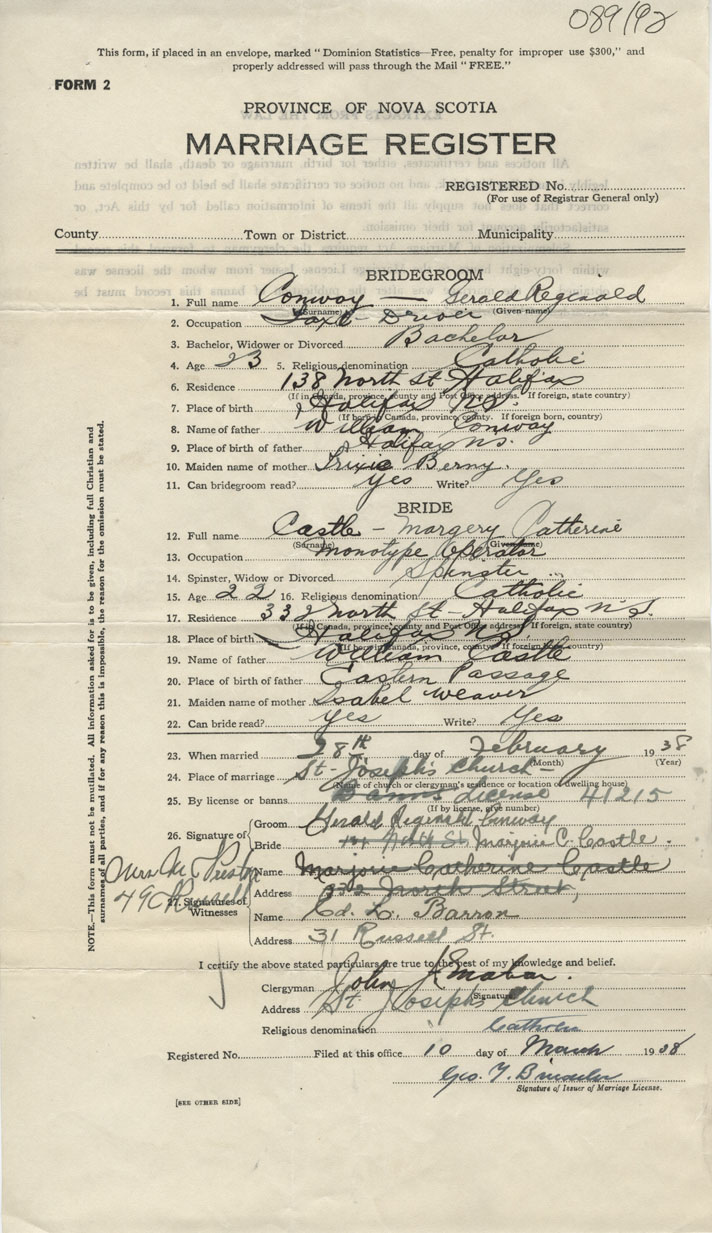 089192
This form, if placed in an envelope, marked "Dominion Statistics—Free, penalty for improper use $300," and
properly addressed will pass through the Mail "FREE."
FORM 2
PROVINCE OF NOVA SCOTIA
MARRIAGE REGISTER
REGISTERED No.
(For use of Registrar General only)
County Town or District Municipality
BRIDEGROOM
1. Full name Conway — Gerald Reginald
(Surname) (Given name)
2. Occupation Taxi - Driver
3. Bachelor, Widower or Divorced Bachelor
4. Age 23 5. Religious denomination Catholic
6. Residence 138 North St Halifax
(If in Canada, province, county and Post Office address. If foreign, state country)
7. Place of birth Halifax N.S.
(If born in Canada, province, county. If foreign born, country)
8. Name of father William Conway
9. Place of birth of father Halifax NS.
10. Maiden name of mother Trixie Berny.
11. Can bridegroom read? Yes Write? Yes
BRIDE
12. Full name Castle - Margery Catherine
(Surname) (Given name)
13. Occupation Monotype Operator
14. Spinster, Widow or Divorced Spinster
15. Age 22 16. Religious denomination Catholic
17. Residence 332 North St - Halifax N.S.
(If in Canada, province, county and Post Office address. If foreign, state country)
18. Place of birth Halifax NS.
(If born in Canada, province, county. If foreign born, country)
19. Name of father William Castle
20. Place of birth of father Eastern Passage
21. Maiden name of mother Isabel Weaver
22. Can bride read? Yes Write? Yes
23. When married 28th day of February 1938
(Month) (Year)
24. Place of marriage St-Joseph's Church -
(Name of church or clergyman's residence or location of dwelling house)
25. By license or banns Banns License 41215
(If by license, give number)
26. Signature of Groom Gerald Reginald Conway
Bride North St Marjorie C. Castle.
Mrs M Preston
49 Russell
27. Signatures of Witnesses
Name Marjorie Catherine Castle
Address 332 North Street,
Name Ed. L. Barron
Address 31 Russell St.
I certify the above stated particulars are true to the best of my knowledge and belief.
Clergyman John
(Signature)
Address St Joseph's Church
Religious denomination Catholic
Registered No. Filed at this office 10 day of March 1938
Geo. T.
Signature of Issuer of Marriage License.
[SEE OTHER SIDE]
NOTE.—This form must not be mutilated. All information asked for is to be given, including full Christian and
surnames of all parties, and if for any reason this is impossible, the reason for the omission must be stated.